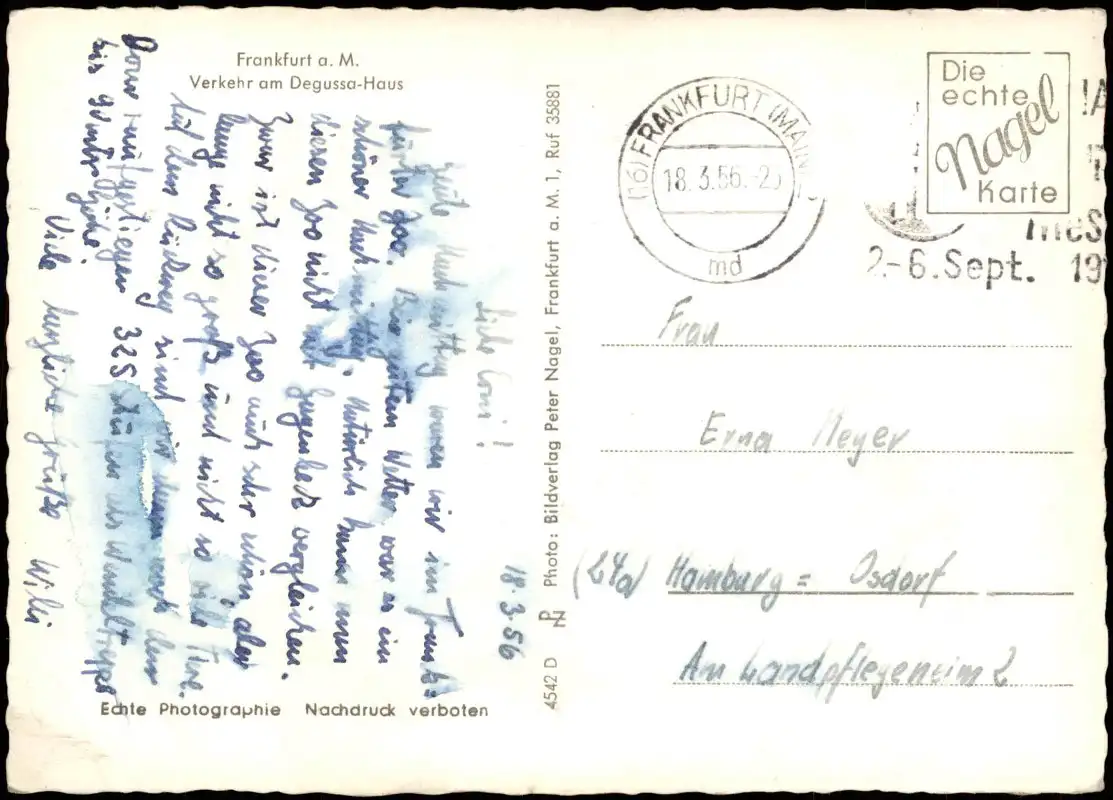 Frankfurt a. M.
Verkehr am Degussa-Haus
18.3.56
Liebe Erna!
Heute Nachmittag waren wir im Frank-
furter Zoo. Bei gutem Wetter war es ein
schöner Nachmittag. Natürlich kann man
diesen Zoo nicht mit Hagenbeck vergleichen.
Zwar ist dieser Zoo auch sehr schön aber
lange nicht so groß und nicht so viele Tiere.
Auf dem Rückweg sind wir dann noch den
Dom raufgestiegen 325 Stufen als Wendeltreppe
bis
Viele herzliche Grüße Willi
Echte Photographie Nachdruck verboten
4542 D
PN
Photo: Bildverlag Peter Nagel, Frankfurt a. M. 1, Ruf 35881
(16) FRANKFURT (MAIN)
18.3.56.-20
md
2.-6. Sept. 19
Die
echte
Nagel
Karte
Frau
Erna Meyer
(24a) Hamburg = Osdorf
Am Landpflegeheim 2